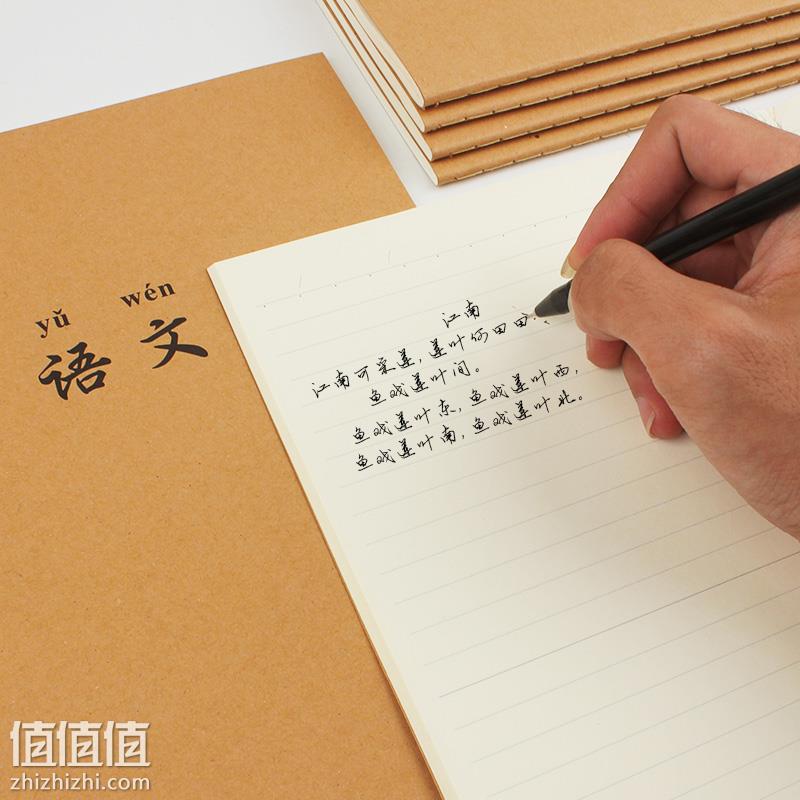 yǔ wén
语文
江南
江南可采莲，莲叶何田田，
鱼戏莲叶间。
鱼戏莲叶东，鱼戏莲叶西，
鱼戏莲叶南，鱼戏莲叶北。
值值值
zhizhizhi.com